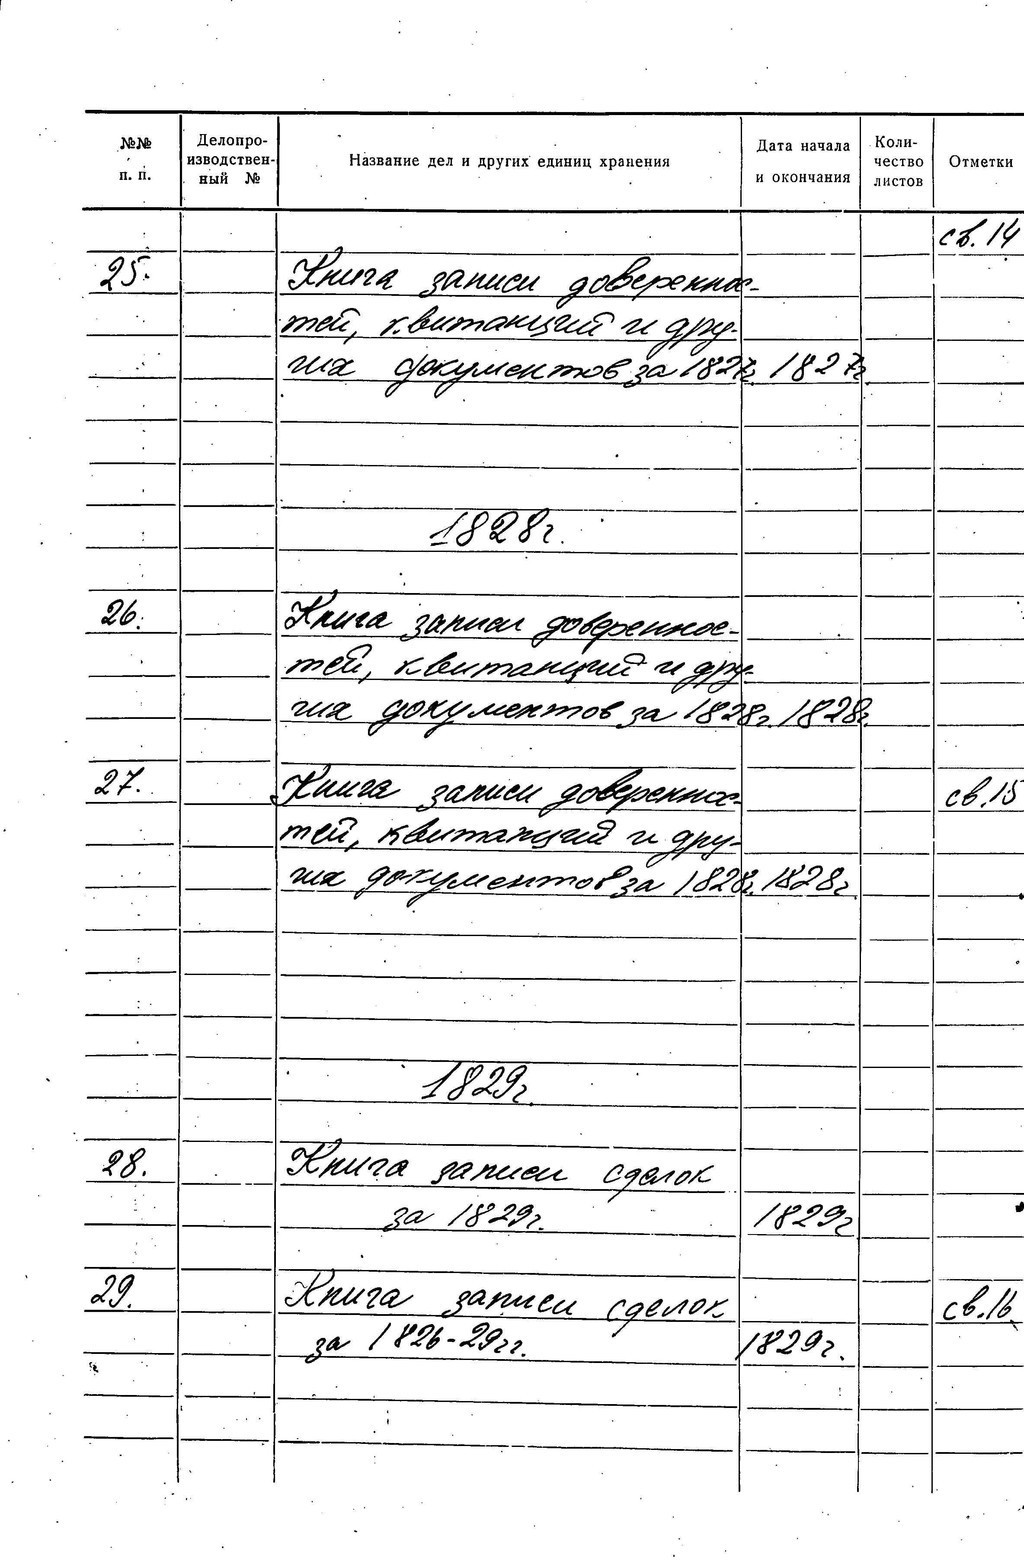 №№ п. п.
Делопро-
изводствен-
ный №
Название дел и других единиц хранения
Дата начала
и окончания
Коли-
чество
листов
Отметки
св. 14
25. Книга записи довереннос-
тей, квитанций и дру-
гих документов за 1827г. 1827г
1828г.
26. Книга записи довереннос-
тей, квитанций и дру-
гих документов за 1828г. 1828г.
27. Книга записи довереннос- св. 15
тей, квитанций и дру-
гих документов за 1828г. 1828г.
1829г.
28. Книга записи сделок
за 1829г. 1829г
29. Книга записи сделок св. 16
за 1826-29гг. 1829г.